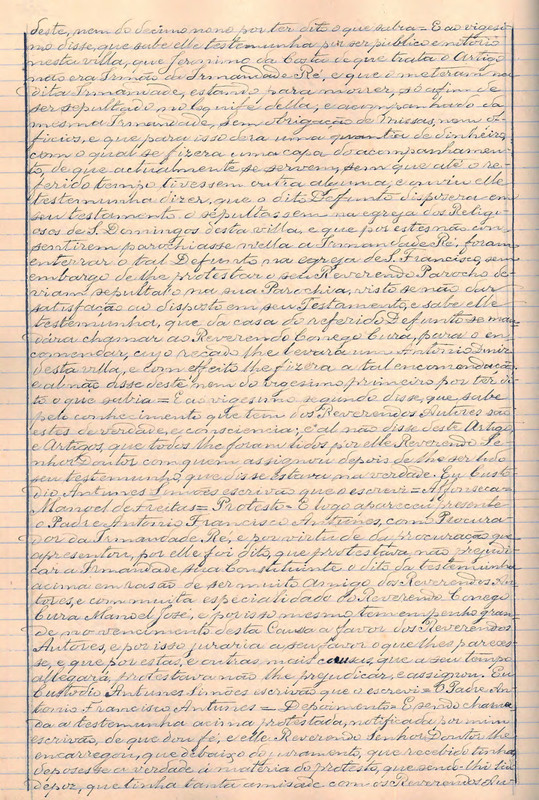 deste, nem do decimo nono por ter dito o que sabia = E ao vigesi-
mo disse, que sabe elle testemunha por ser publico e notorio
nesta villa, que Jeronimo da Costa de que trata o Artigo
não era Irmão da Irmandade Ré, e que o meteram na
dita Irmandade, estando para morrer, só afim de
ser sepultado no Esquife della, e acompanhado da
mesma Irmandade, sem obrigação de missas, nem of-
ficios, e que para isso dera uma quantia de dinheiro,
com o qual se fizera uma capa do acompanhamen-
to, de que actualmente se servem, sem que até o re-
ferido tempo tivessem outra alguma; e ouviu elle
testemunha dizer, que o dito Defunto dispozera em
seu testamento o sepultassem na egreja dos Religi-
osos de S. Domingos desta villa, e que por estes não con-
sentirem parochiasse nella a Irmandade Ré, foram
enterrar o tal Defunto na egreja de S. Francisco, sem
embargo de lhe protestar o seu Reverendo Parocho de-
viam sepultalo na sua Parochia, visto se não dar
satisfação ao disposto em seu Testamento, e sabe elle
testemunha, que da casa do referido Defunto se man-
dára chamar ao Reverendo Conego Cura, para o en-
comendar, cujo recado lhe levára um Antonio Diniz
desta villa, e com effeito lhe fizera a tal encomendação,
e al não disse deste nem do vigesimo primeiro por ter di-
to o que sabia = E ao vigesimo segundo disse, que sabe
pelo conhecimento que tem dos Reverendos Autores são
estes de verdade, e consciencia; e al não disse deste Artigo,
e Artigos, que todos lhe foram lidos por elle Reverendo Se-
nhor Doutor com quem assignou depois de lhe ser lido
seu testemunho, que disse estava na verdade. Eu Custo-
dio Antunes Simões escrivão que o escrevi = Affonseca =
Manoel de Freitas = Protesto = E logo appareceu presente
o Padre Antonio Francisco Antunes, como Procura-
dor da Irmandade Ré, e por virtude da Procuração que
apresentou, por elle foi dito, que protestava não prejudi-
car a Irmandade sua Constituinte o dito da testemunha
acima em rasão de ser muito Amigo dos Reverendos Au-
tores, e com muita especialidade do Reverendo Conego
Cura Manoel José, e por isso mesmo tem empenho gran-
de no vencimento desta Causa a favor dos Reverendos
Autores, e por isso juraria a seu favor o que lhes pareces-
se, e que por estas, e outras mais causas, que a seu tempo
allegará, protestava não lhe prejudicar, e assignou. Eu
Custodio Antunes Simões escrivão que o escrevi = O Padre An-
tonio Francisco Antunes = Depoimento = E sendo chama-
da a testemunha acima protestada, notificada por mim
escrivão, de que dou fé, e elle Reverendo Senhor Doutor lhe
encarregou, que debaixo do juramento, que recebido tinha,
depozesse a verdade á materia do protesto, que sendo-lhe lido
depoz, que tinha tanta amisade com os Reverendos Au-